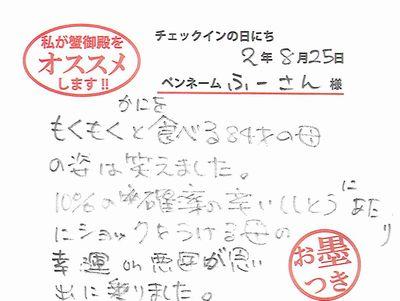 私が蟹御殿を
オススメ
します!!
チェックインの日にち
2年8月25日
ペンネーム ふーさん 様
かにを
もくもくと食べる84才の母
の姿は笑えました。
10%の確率の辛いししとうにあたり
にショックをうける母の
幸運on悪母が思い
出に残りました。
お墨
つき